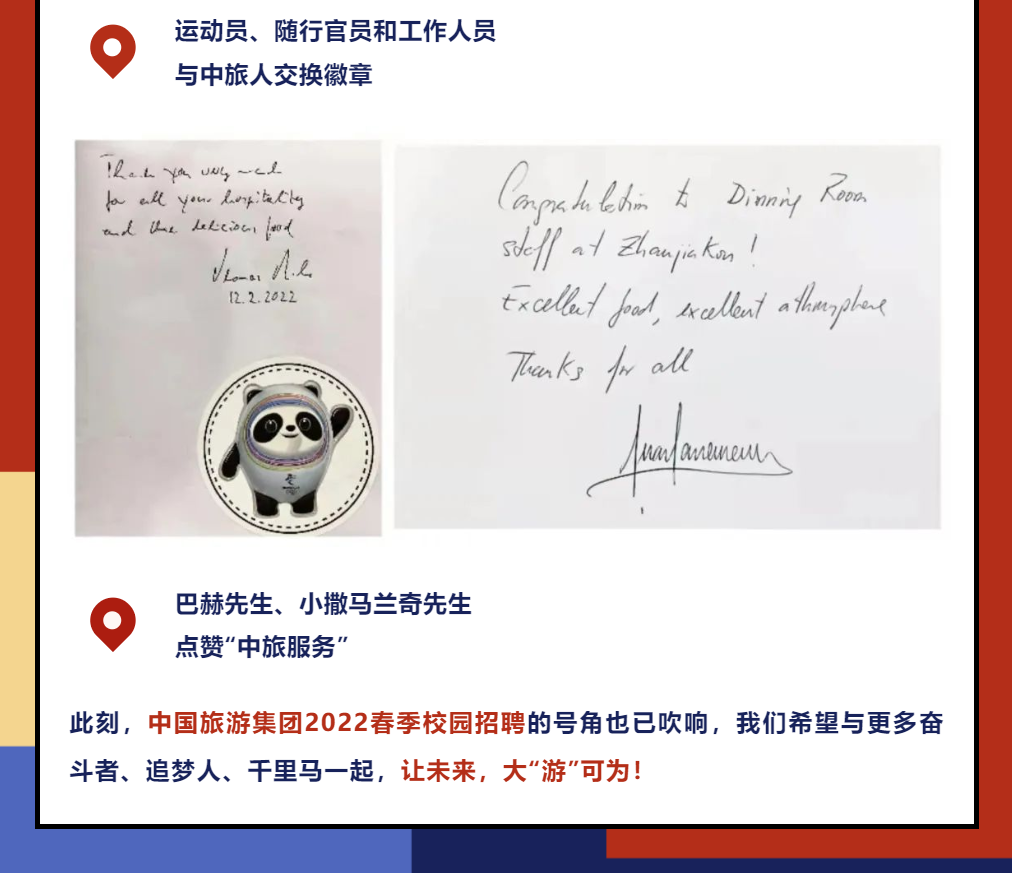 运动员、随行官员和工作人员
与中旅人交换徽章
Thank you very much
for all your hospitality
and the delicious food
12.2.2022
Congratulation to Dinning Room
staff at Zhanjiakou !
Excellent food, excellent athmosphere
Thanks for all
巴赫先生、小撒马兰奇先生
点赞“中旅服务”
此刻，中国旅游集团2022春季校园招聘的号角也已吹响，我们希望与更多奋
斗者、追梦人、千里马一起，让未来，大“游”可为！